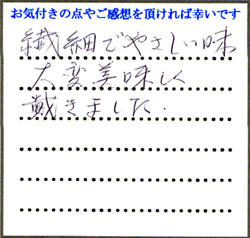 お気付きの点やご感想を頂ければ幸いです
繊細でやさしい味
大変美味しく
戴きました.